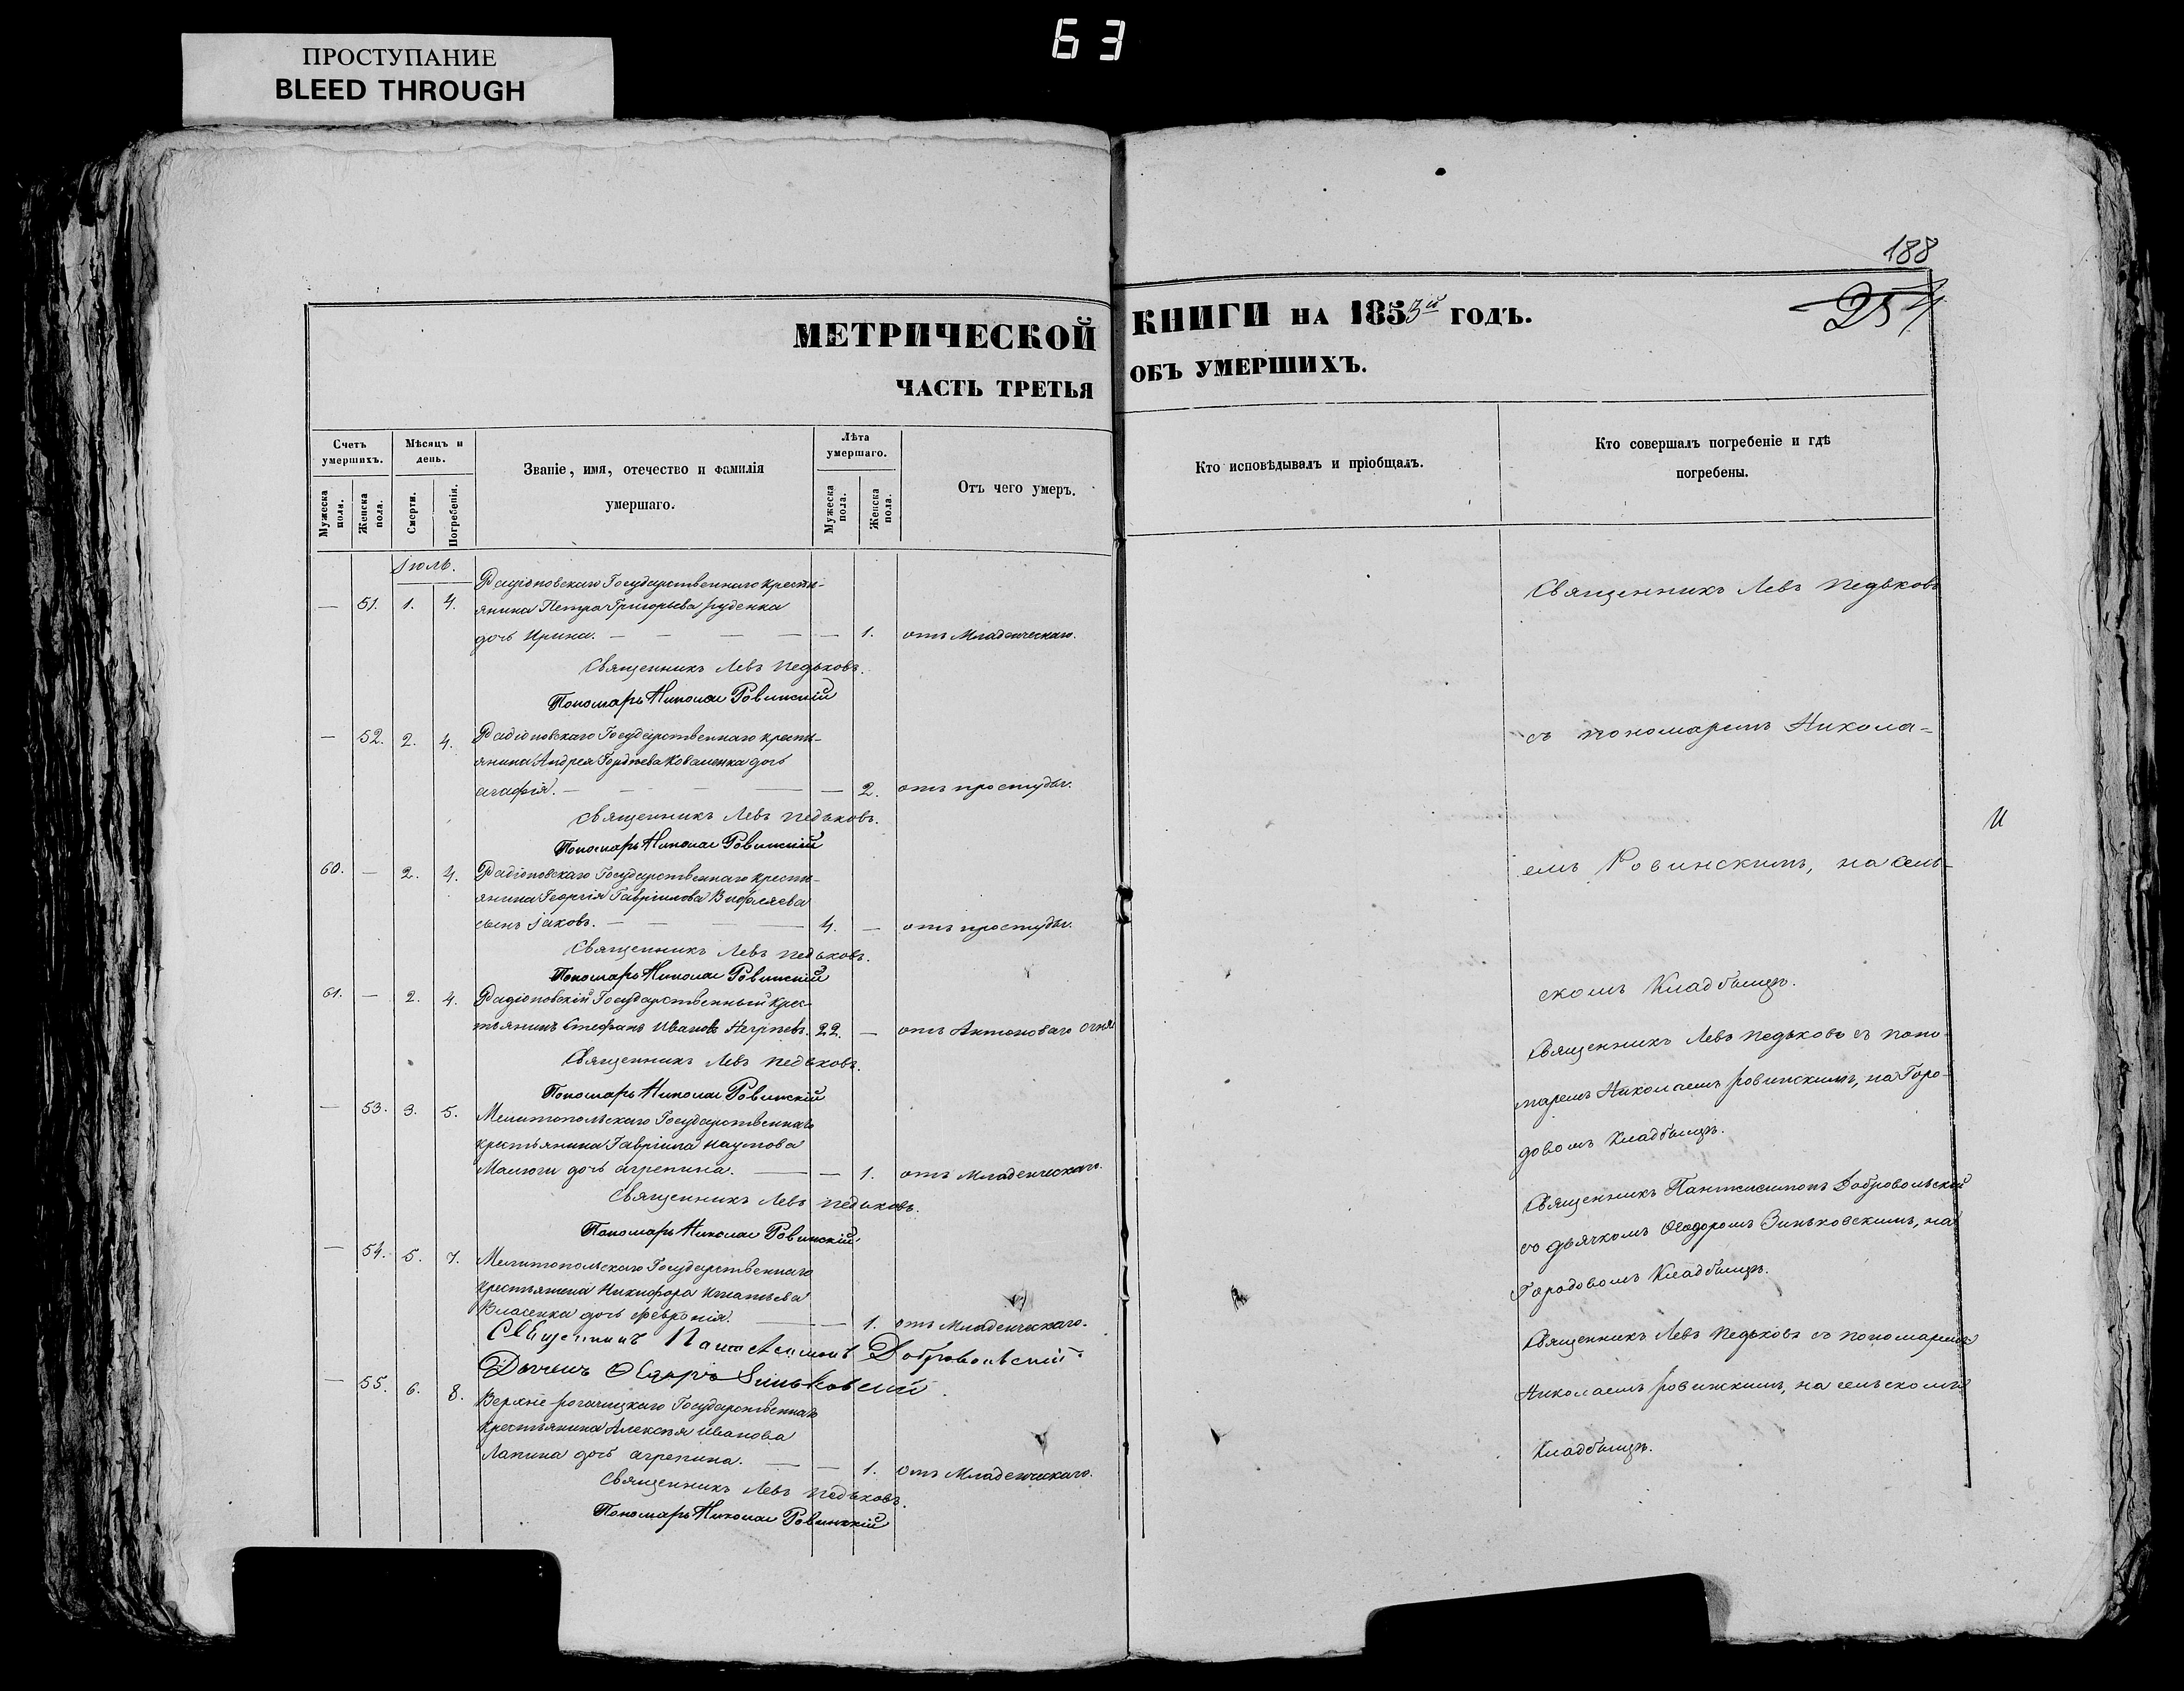 63
ПРОСТУПАНИЕ
BLEED THROUGH
188
254
МЕТРИЧЕСКОЙ КНИГИ НА 1853й ГОДЪ.
ЧАСТЬ ТРЕТЬЯ ОБЪ УМЕРШИХЪ.
Счетъ умершихъ.
Мужеска пола.
Женска пола.
Мѣсяцъ и день.
Смерти.
Погребенія.
Званіе, имя, отечество и фамилія
умершаго.
Лѣта умершаго.
Мужеска пола.
Женска пола.
Отъ чего умеръ.
Кто исповѣдывалъ и пріобщалъ.
Кто совершалъ погребеніе и гдѣ
погребены.
Іюль.
Радіоновскаго Государственнаго крестьянина
— 51. 1. 4. Петра Григорьева Руденка
дочь Ирина. — — — — — 1. отъ Младенческаго.
Священникъ Левъ Педьковъ.
Пономарь Николай Ровинскій
— 52. 2. 4. Радіоновскаго Государственнаго крестьянина
Андрея Гордѣева Коваленка дочь
Агафія. — — — — — 2. отъ простуды.
Священникъ Левъ Педьковъ.
Пономарь Николай Ровинскій
60. — 2. 4. Радіоновскаго Государственнаго крестьянина
Георгія Гавріилова
сынъ Іаковъ. — — — 4. — отъ простуды.
Священникъ Левъ Педьковъ.
Пономарь Николай Ровинскій
61. — 2. 4. Радіоновскій Государственный крестьянинъ
Стефанъ Ивановъ 22. — отъ Антонова огня
Священникъ Левъ Педьковъ.
Пономарь Николай Ровинскій
— 53. 3. 5. Мелитопольскаго Государственнаго
крестьянина Гавріила Наумова
Малюги дочь Агрепина. — — 1. отъ Младенческаго.
Священникъ Левъ Педьковъ.
Пономарь Николай Ровинскій
— 54. 5. 7. Мелитопольскаго Государственнаго
крестьянина Никифора Игнатьева
Власенка дочь Февронія. — — 1. отъ Младенческаго.
Священникъ Пантелеимонъ Добровольскій
Дьячекъ Ѳеодоръ Зиньковскій.
— 55. 6. 8. Верхне-рогачицкаго Государственнаго
крестьянина Алексѣя Иванова
Лапина дочь Агрепина. — — 1. отъ Младенческаго.
Священникъ Левъ Педьковъ.
Пономарь Николай Ровинскій
Священникъ Левъ Педьковъ
съ пономаремъ Никола=
емъ Ровинскимъ, на сель-
скомъ Кладбищѣ.
Священникъ Левъ Педьковъ съ поно-
маремъ Николаемъ Ровинскимъ, на Горо-
довомъ Кладбищѣ.
Священникъ Пантелеимонъ Добровольскій
съ дьячкомъ Ѳеодоромъ Зиньковскимъ, на
Городовомъ Кладбищѣ.
Священникъ Левъ Педьковъ съ пономаремъ
Николаемъ Ровинскимъ, на сельскомъ
Кладбищѣ.
и